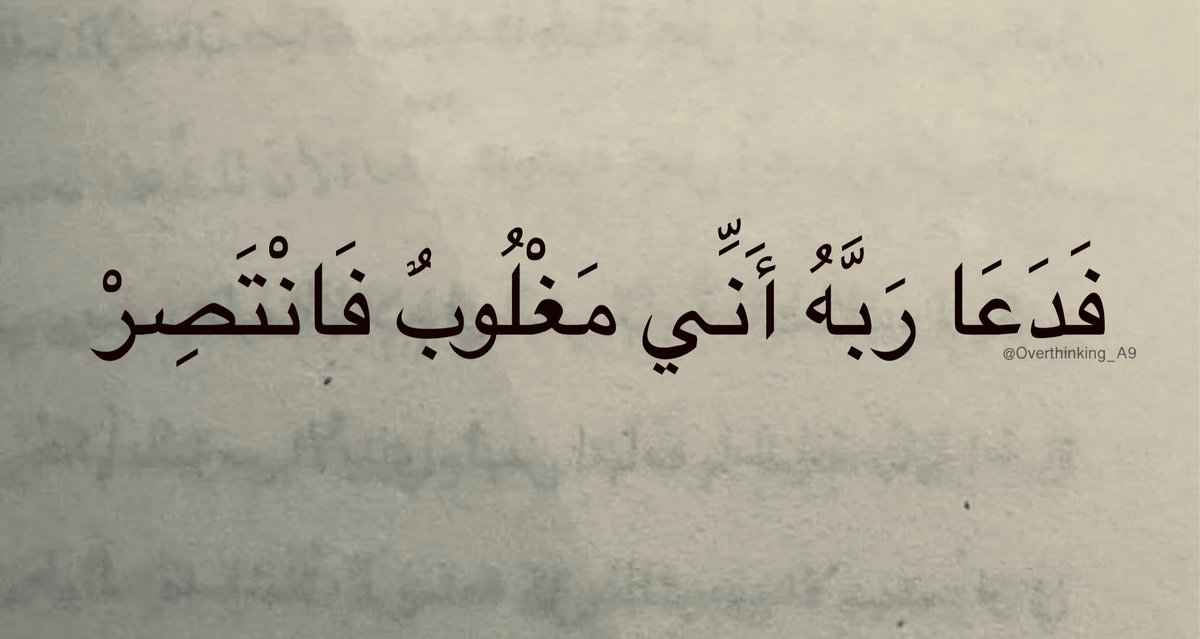 فَدَعَا رَبَّهُ أَنِّي مَغْلُوبٌ فَانْتَصِرْ
@Overthinking_A9